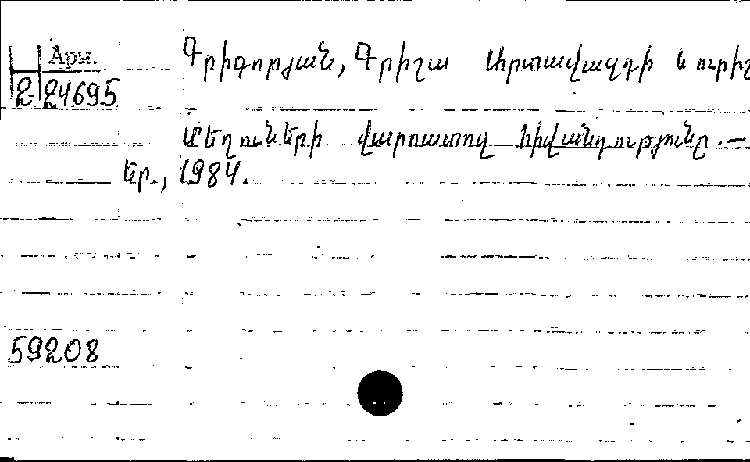 Арм.
2 24695
Գրիգորյան, Գրիշա Արտավազդի և ուրիշ
Մեղուների վարոատոզ հիվանդությունը.—
Եր., 1984.
59208